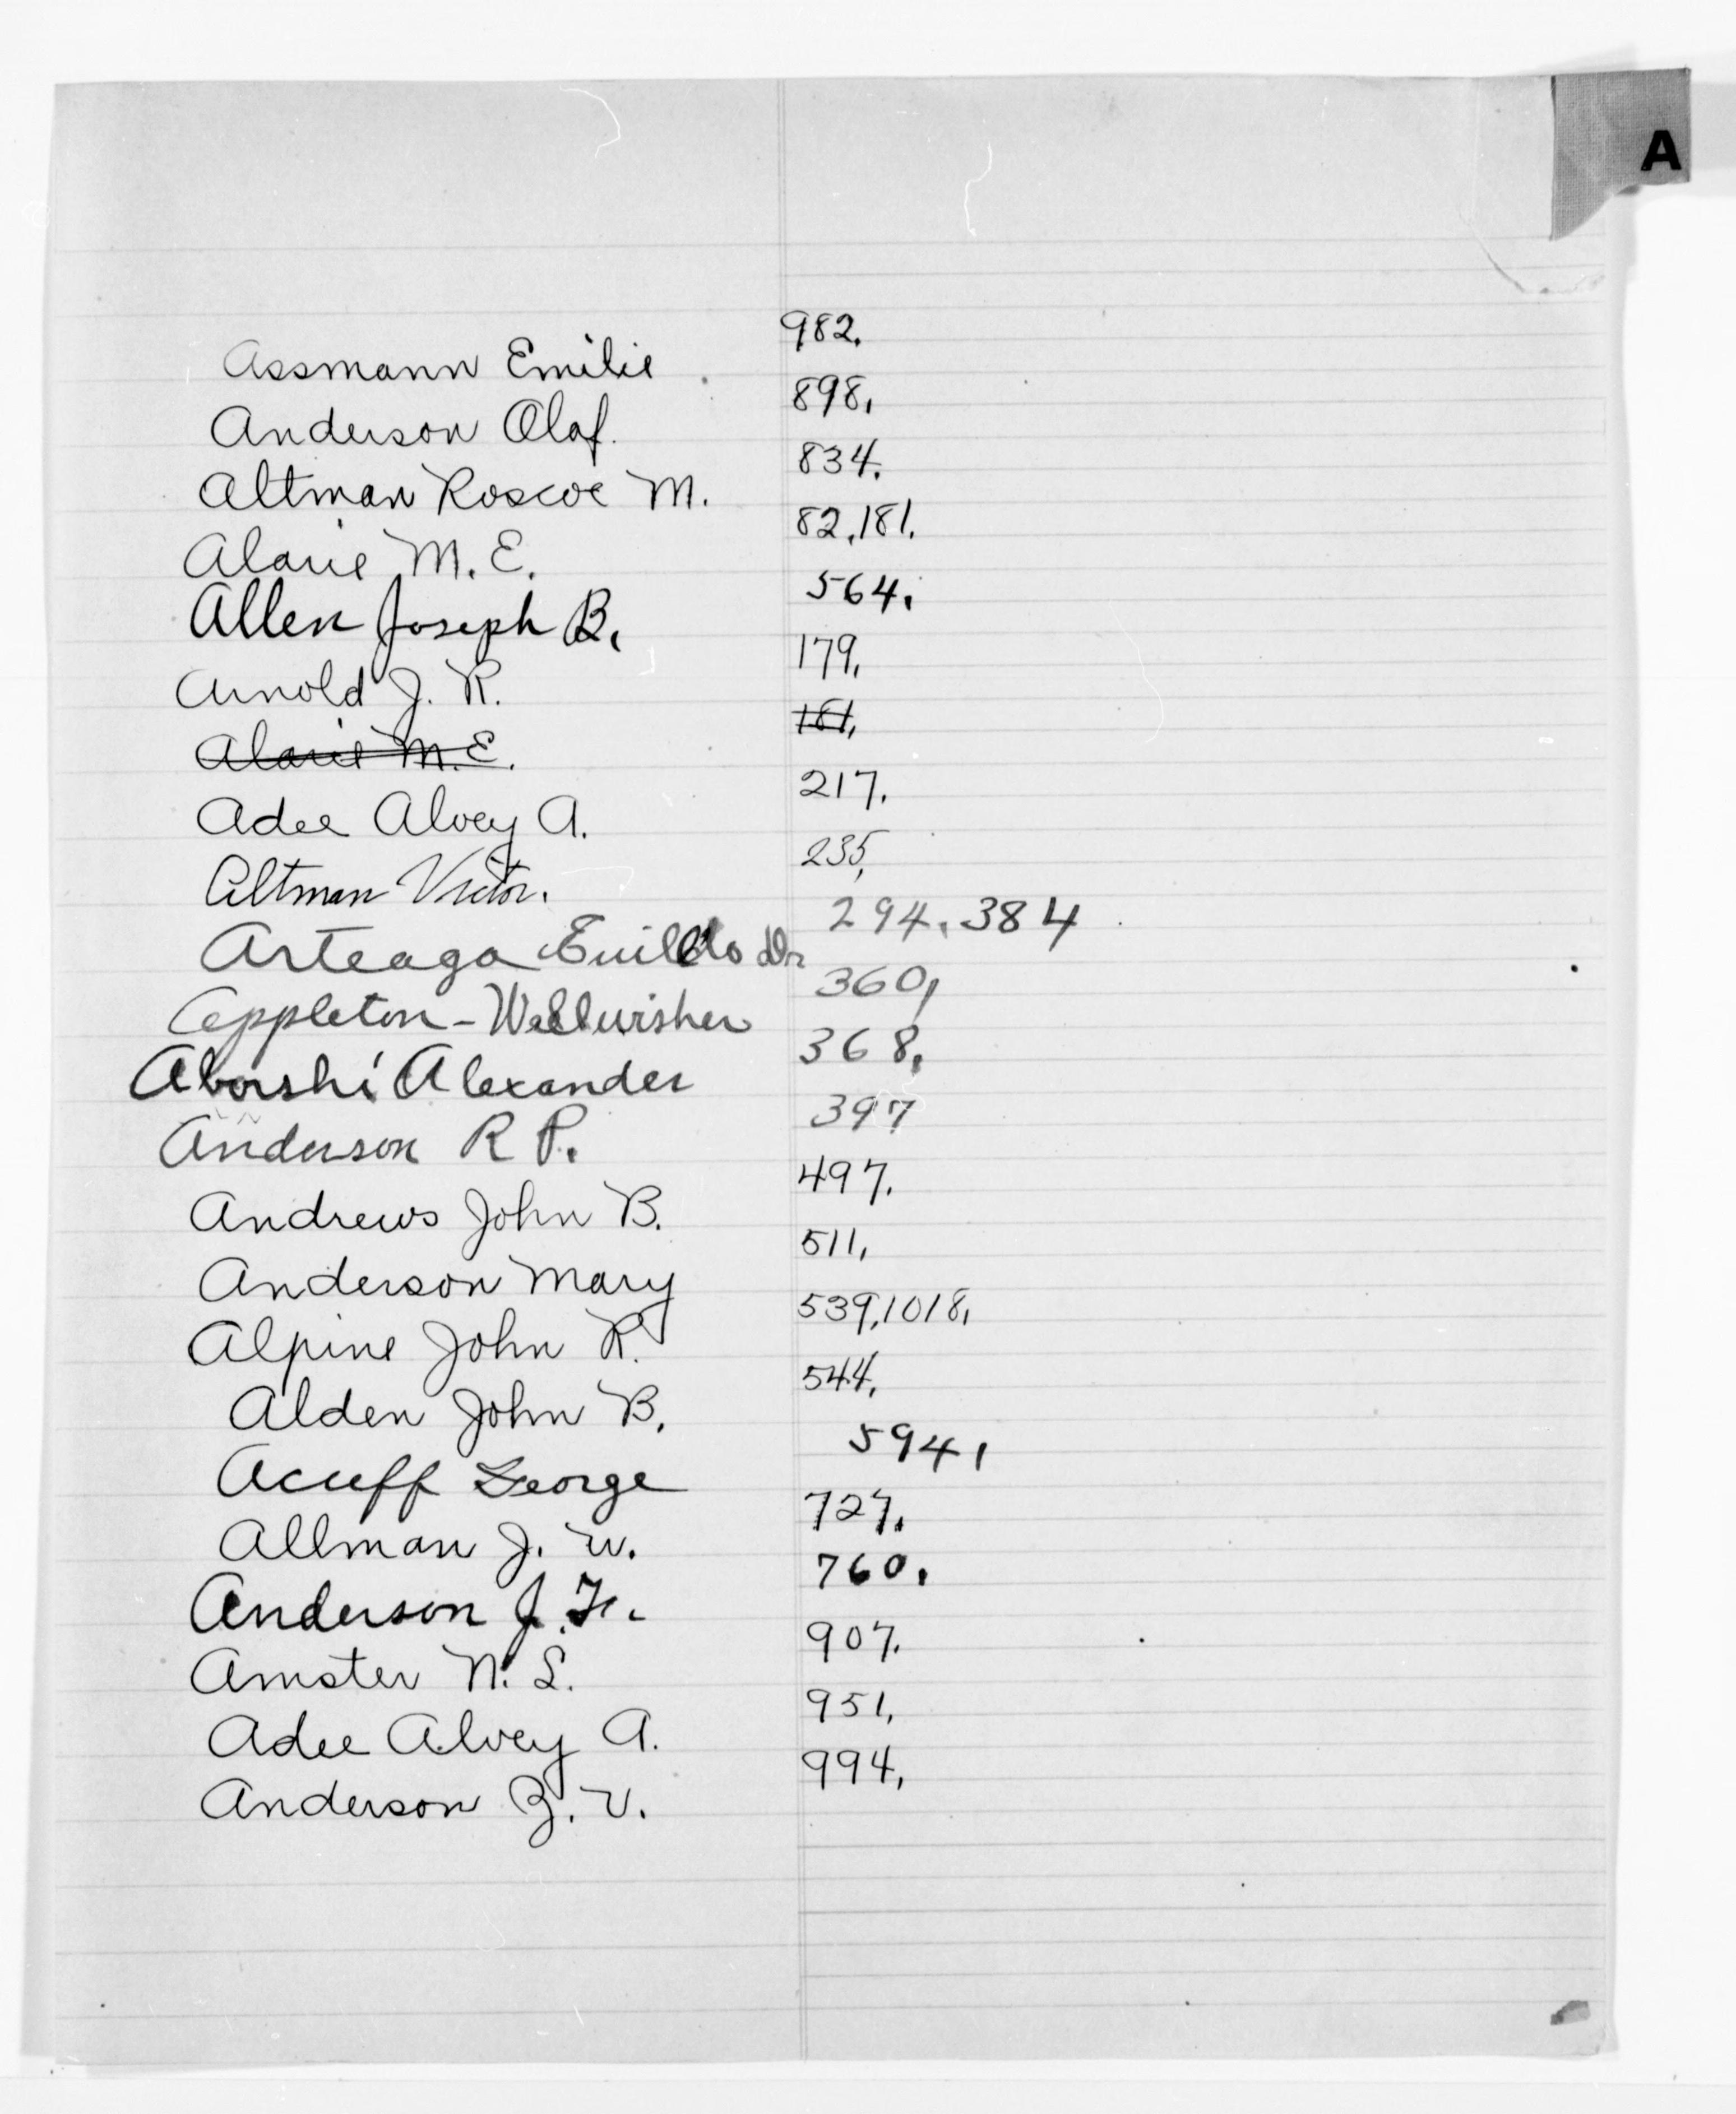 A
Assmann Emilie 982.
Anderson Olaf. 898.
Altman Roscoe M. 834.
Alarie M. E. 82, 181.
Allen Joseph B. 564.
Arnold J. R. 179.
Alarie M. E. 181.
Adee Alvey A. 217.
Altman Victor. 235.
Arteaga Dr 294, 384
Appleton - Wellwisher 360,
Alexander 368.
Anderson R P. 397
Andrews John B. 497.
Anderson Mary 511.
Alpine John R. 539, 1018,
Alden John B. 544.
Acuff George 594,
Allman J. W. 727.
Anderson J. F. 760.
Amster N. L. 907.
Adee Alvey A. 951,
Anderson Z. V. 994,